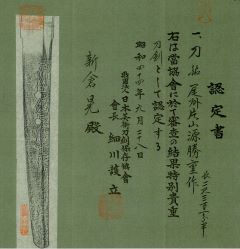 認定書
一、刀 銘 尾州片山源勝重作
長二尺三寸
右は當協會に於て審査の結果特別貴重
刀剣として認定する
昭和四十四年九月二十八日
財團法人日本美術刀剣保存協會
會長 細川護立
新倉晃殿